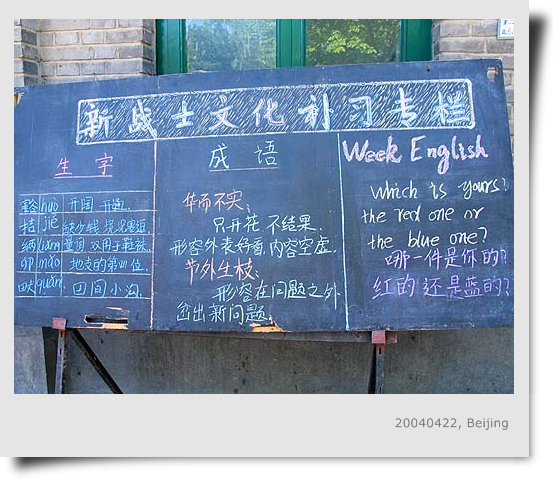 新战士文化补习专栏
生字
豁 huō 开阔 开通.
拮 jié 缺少钱 境况窘迫
liǎng 量词 双用于鞋袜
卯 mǎo 地支的第四位.
畎 quǎn 田间小沟.
成语
华而不实:
只开花 不结果.
形容外表好看,内容空虚.
节外生枝:
形容在问题之外
岔出新问题.
Week English
Which is yours?
the red one or
the blue one?
哪一件是你的?
红的还是蓝的?
20040422, Beijing